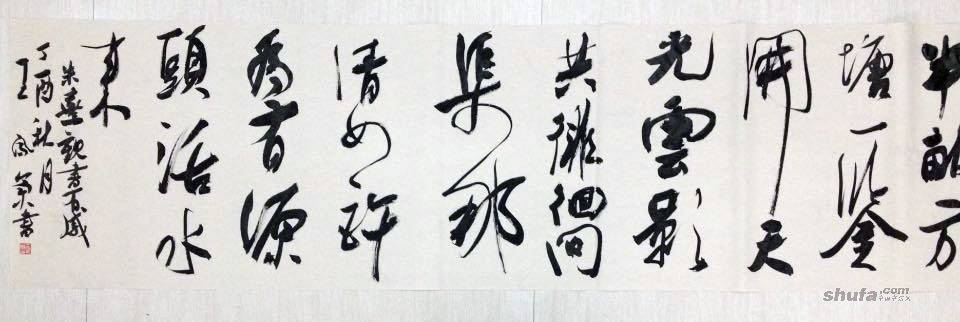 半畝方
塘一鑒
開天
光雲影
共徘徊問
渠那
清如許
為有源
頭活水
来
朱熹觀書有感
丁酉秋月
王鳳書
shufa.com